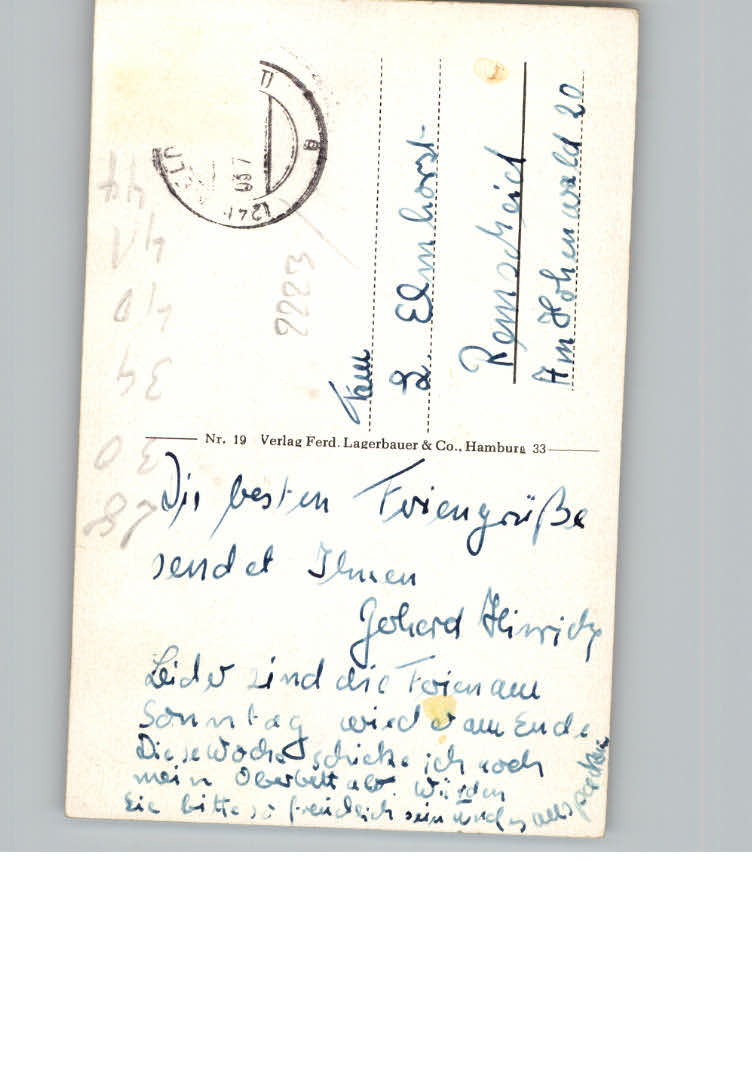 Frau
L. Elmhorst
Remscheid
Am Hohenwald 20
2223
44
41
40
39
30
Nr. 19 Verlag Ferd. Lagerbauer & Co., Hamburg 33
Die besten Feriengrüße
sendet Ihnen
Gerhard Hinrichs
Leider sind die Ferien am
Sonntag wieder am Ende
Diese Woche schicke ich noch
mein Oberbett ab. Würden
Sie bitte so freundlich sein und es auspacken